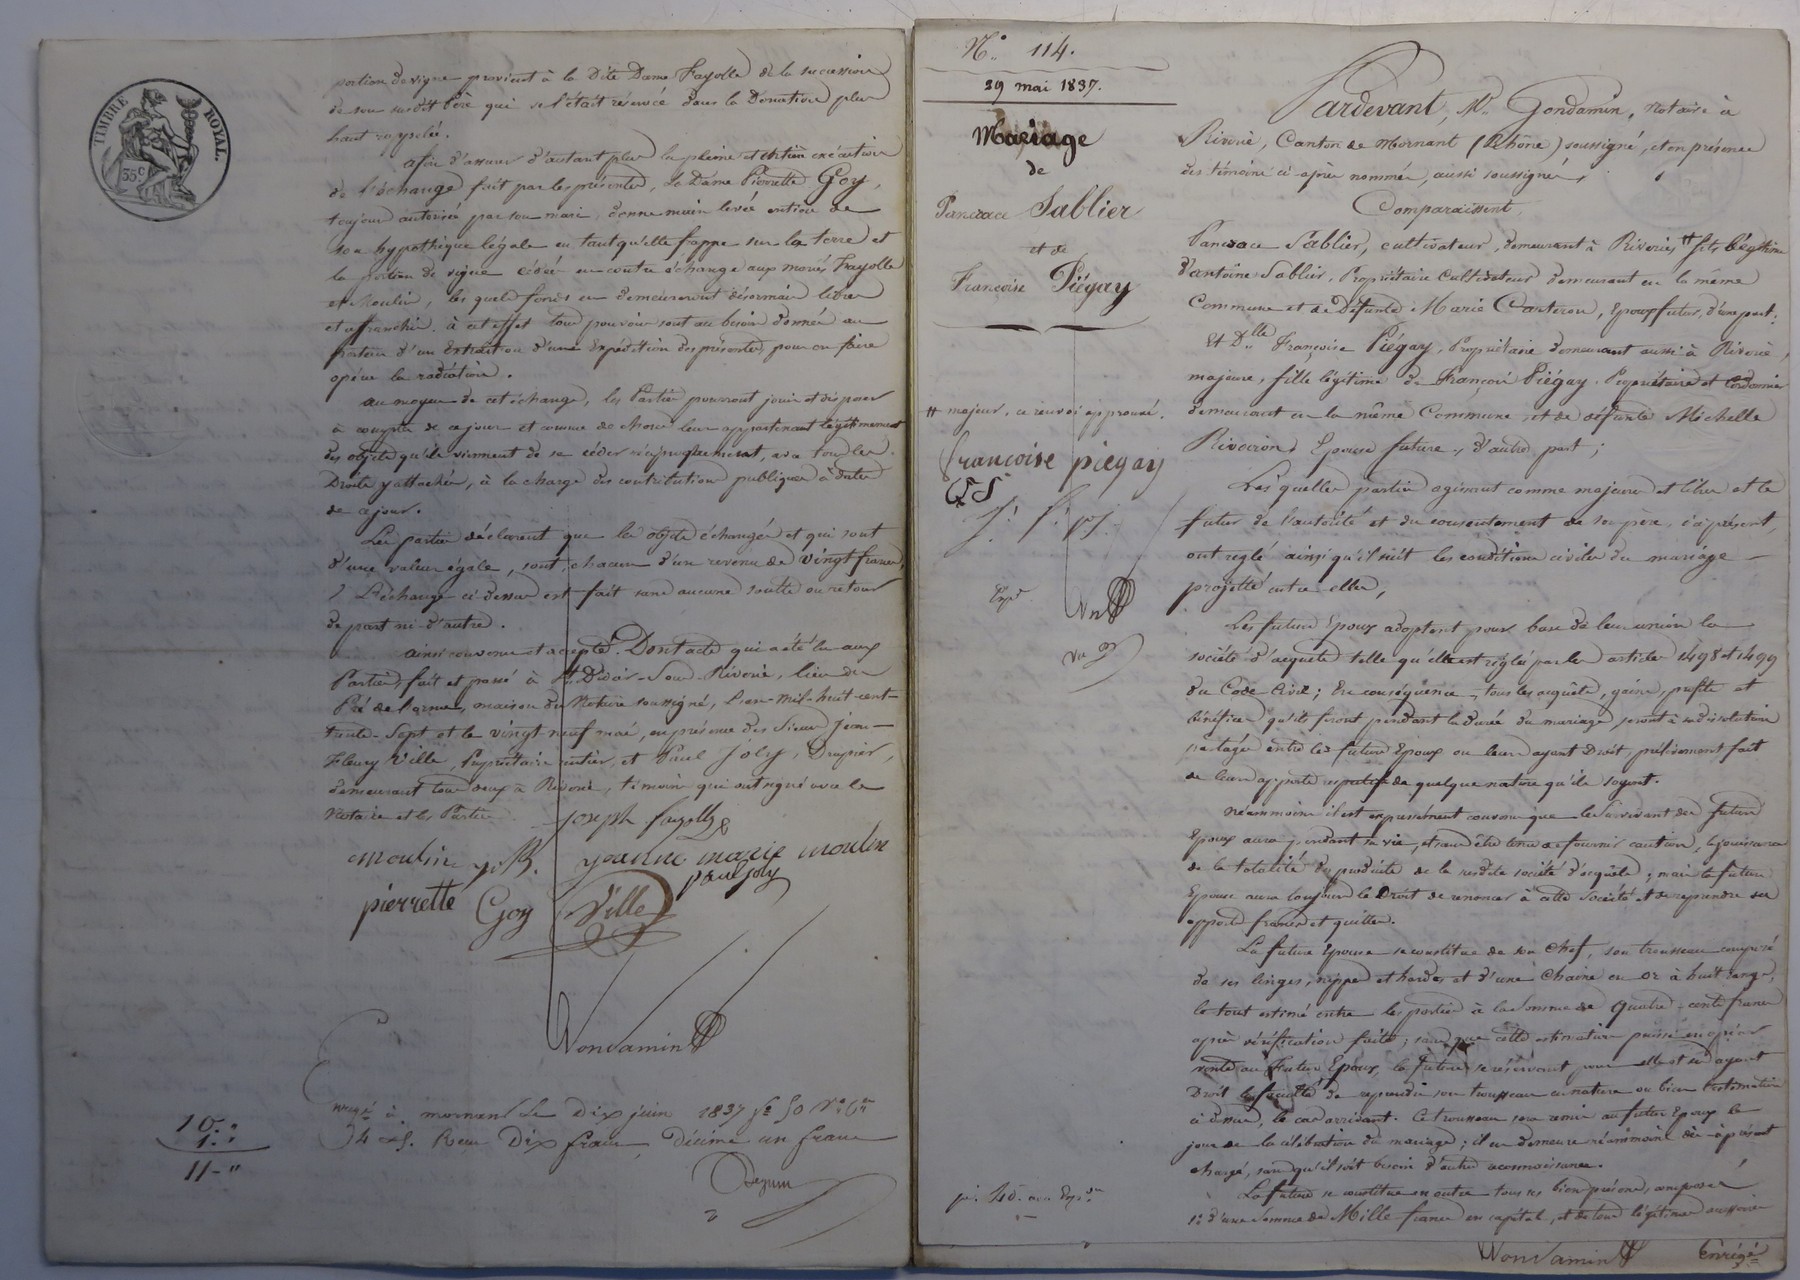 TIMBRE ROYAL.
35 c
portion de vigne provient à la dite Dame Fayolle de la succession
de son susdit Père qui se l'était réservée dans la Donation plus
haut rappelée.
afin d'assurer d'autant plus la pleine et entière exécution
de l'échange fait par les présentes, la Dame Pierrette Goy,
toujours autorisée par son mari, donne main levée entière de
son hypothèque légale en tant qu'elle frappe sur la terre et
la portion de vigne cédée en contre échange aux mariés Fayolle
et Moulin, les quels fonds en demeureront désormais libres
et affranchis. à cet effet tous pouvoirs sont au besoin donnés au
porteur d'un Extrait ou d'une Expédition des présentes pour en faire
opérer la radiation.
au moyen de cet échange, les Parties pourront jouir et disposer
à compter de ce jour et comme de choses leur appartenant légitimement
des objets qu'ils viennent de se céder réciproquement, avec tous les
Droits y attachés, à la charge des contributions publiques à dater
de ce jour.
Les parties déclarent que les objets échangés et qui sont
d'une valeur égale, sont chacun d'un revenu de vingt francs,
L'échange ci-dessus est fait sans aucune soulte ou retour
de part ni d'autre.
ainsi convenu et accepté. Dont acte qui a été lu aux
Parties, fait et passé à St Didier-Sous-Riverie, lieu du
Pré de l'orme, maison du Notaire soussigné, L'an-Mil-huit-cent-
trente-Sept et le vingt neuf mai, en présence des Sieurs jean-
Fleury Ville, Propriétaire rentier, et Paul Joly, Drapier,
demeurant tous deux à Riverie, témoins qui ont signé avec le
Notaire et les Parties.
joseph fayolle
moulin jeanne marie moulin
paul joly
pierrette Goy Ville
Gondamin
Enregé à mornant Le Dix juin 1837 fo 50 Ro
Reçu Dix francs, Décime un franc
10. "
1. "
11 - "
No 114.
29 mai 1837.
Mariage
de
Pancrace Sablier
et de
Françoise Piégay
# majeur, ce renvoi approuvé.
francoise piegay
Expé
Vu
Pardevant, Me Gondamin, Notaire à
Riverie, Canton de Mornant (Rhône) soussigné, et en présence
des témoins ci-après nommés, aussi soussignés,
Comparaissent,
Pancrace Sablier, cultivateur, demeurant à Riverie, # fils légitime
d'antoine Sablier, Propriétaire Cultivateur demeurant en la même
Commune et de Défunte Marie Carteron, Epoux futur, d'une part;
Et Dlle Françoise Piégay, Propriétaire demeurant aussi à Riverie,
majeure, fille légitime de François Piégay, Propriétaire et Cordonnier
demeurant en la même Commune et de défunte Michelle
Rivoiron, Epouse future, d'autre part;
Les quelles parties agissant comme majeures et libres et le
futur de l'autorité et du consentement de son père, ici présent,
ont réglé ainsi qu'il suit les conditions civiles du mariage
projetté entre elles,
Les futurs Epoux adoptent pour base de leur union la
société d'acquets telle qu'elle est réglée par les articles 1498 et 1499
du Code Civil; En conséquence, tous les acquêts, gains, profits et
bénéfices qu'ils feront pendant la durée du mariage, seront à sa dissolution
partagés entre les futurs Epoux ou leurs ayant Droit, prélèvement fait
de leurs apports respectifs de quelque nature qu'ils soyent.
Néanmoins il est expressément convenu que le survivant des futurs
Epoux aura pendant sa vie, et sans être tenu de fournir caution, jouissance
de la totalité des produits de la susdite société d'acquêts; mais la future
Epouse aura toujours le Droit de renoncer à cette Société et de reprendre ses
apports francs et quittes.
La future Epouse se constitue de son Chef, son trousseau composé
de ses linges, nippes et hardes et d'une Chaine en or à huit rangs,
le tout estimé entre les parties à la Somme de Quatre-cents francs
après vérification faite; sans que cette estimation puisse en opérer
vente au Futur Epoux, la future se réservant pour elle et ses ayant
Droit la faculté de reprendre son trousseau en nature ou bien l'estimation
ci dessus, le cas arrivant. Ce trousseau sera remis au futur Epoux le
jour de la célébration du mariage; il en demeure néanmoins dès-à-présent
chargé, sans qu'il soit besoin d'autre reconnaissance.
La future se constitue en outre tous ses biens présens, composés
1o d'une Somme de Mille francs en capital, et de tous légitimes accessoires
Gondamin Enregé